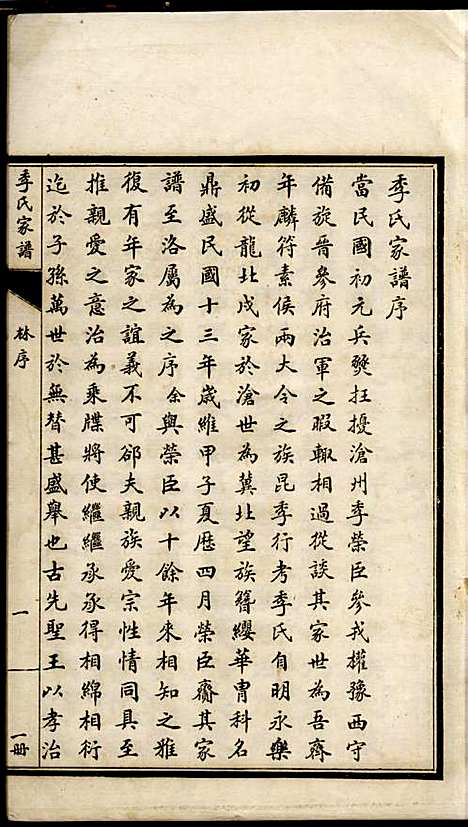 季氏家譜序
當民國初元兵燹抂擾滄州季榮臣參戎權豫西守
備旋晉參府治軍之暇輙相過從談其家世為吾齊
年麟符素侯兩大令之族昆季行考季氏自明永樂
初從龍北戍家於滄世為冀北望族簪纓華胄科名
鼎盛民國十三年歲維甲子夏厯四月榮臣齎其家
譜至洛屬為之序余與榮臣以十餘年來相知之雅
復有年家之誼義不可郤夫親族愛宗性情同具至
推親愛之意治為乘牒將使繼繼承承得相綿相衍
迄於子孫萬世於無替甚盛舉也古先聖王以孝治
季氏家譜
林序
一
一冊